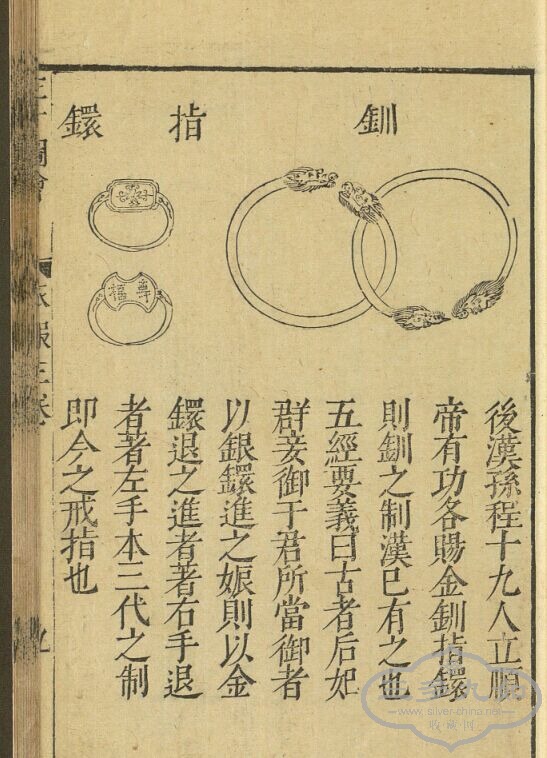 釧
指鐶
壽
福
後漢孫程十九人立順
帝有功各賜金釧指鐶
則釧之制漢已有之也
五經要義曰古者后妃
群妾御于君所當御者
以銀鐶進之娠則以金
鐶退之進者著右手退
者著左手本三代之制
即今之戒指也
三才圖會
衣服三卷
九
www.silver-china.net
收藏網